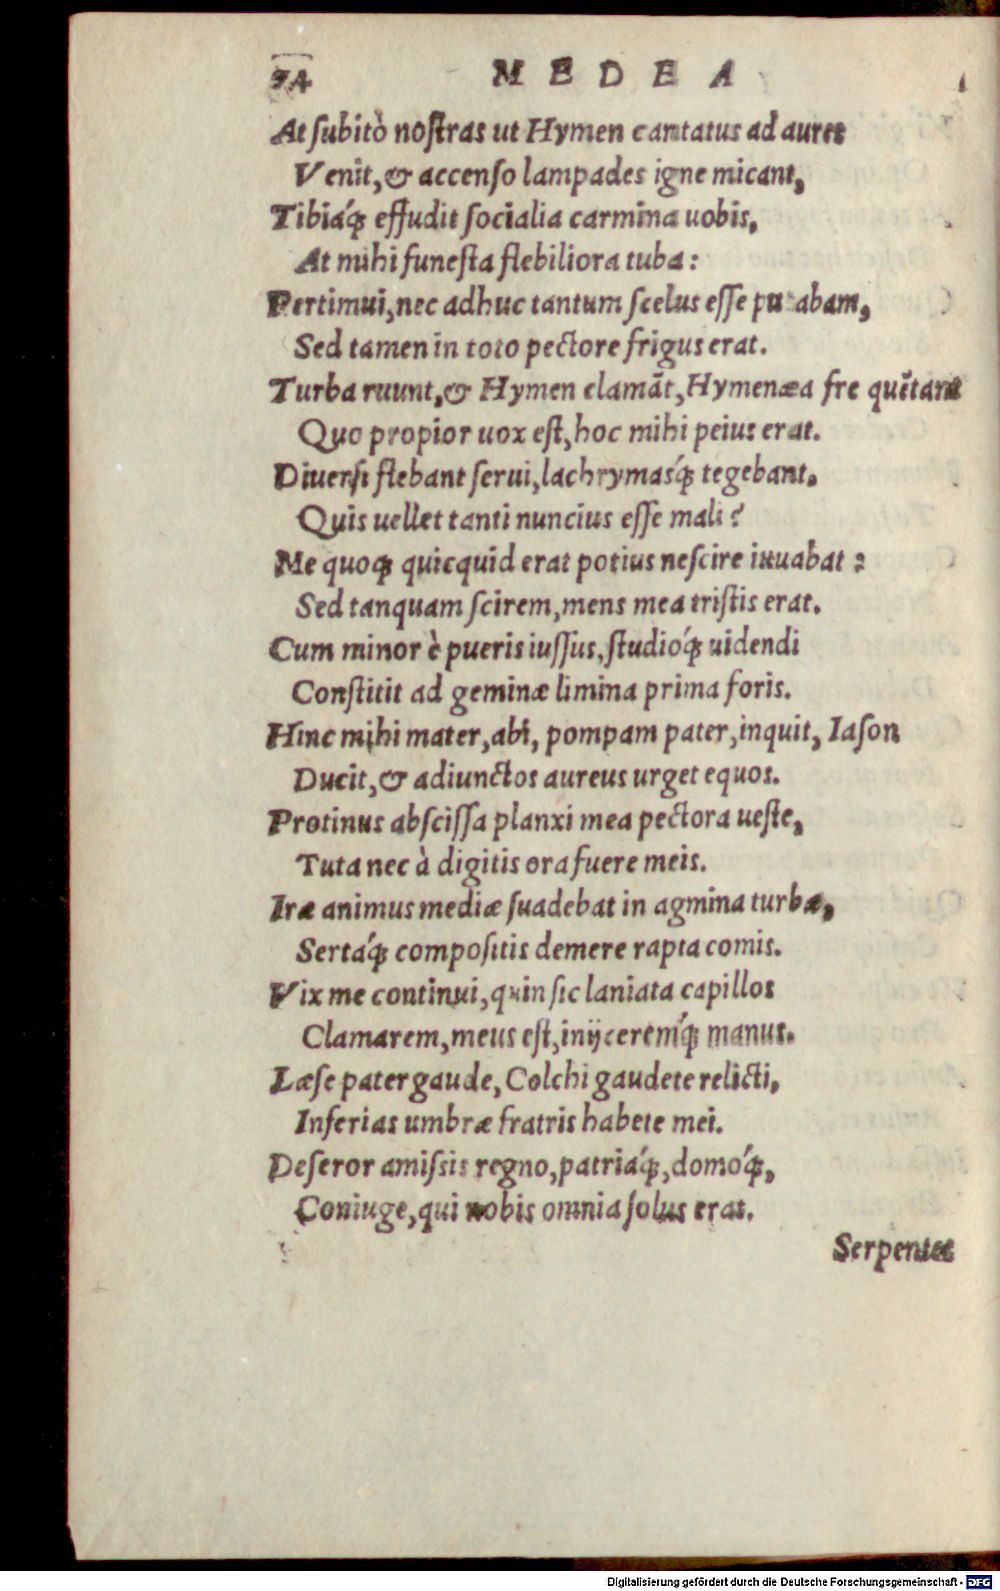 74 MEDEA
At ſubitò noſtras ut Hymen cantatus ad aures
Venit, & accenſo lampades igne micant,
Tibiáq́; effudit ſocialia carmina uobis,
At mihi funeſta flebiliora tuba:
Pertimui, nec adhuc tantum ſcelus eſſe putabam,
Sed tamen in toto pectore frigus erat.
Turba ruunt, & Hymen clamãt, Hymenæa frequẽtant
Quo propior uox eſt, hoc mihi peius erat.
Diuerſi flebant ſerui, lachrymasq́; tegebant.
Quis uellet tanti nuncius eſſe mali?
Me quoq; quicquid erat potius neſcire iuuabat:
Sed tanquam ſcirem, mens mea triſtis erat.
Cum minor è pueris iuſſus, ſtudioq́; uidendi
Conſtitit ad geminæ limina prima foris.
Hinc mihi mater, abi, pompam pater, inquit, Iaſon
Ducit, & adiunctos aureus urget equos.
Protinus abſciſſa planxi mea pectora ueſte,
Tuta nec à digitis ora fuere meis.
Iræ animus mediæ ſuadebat in agmina turbæ,
Sertáq́; compoſitis demere rapta comis.
Vix me continui, quin ſic laniata capillos
Clamarem, meus eſt, inijceremq́; manus.
Læſe pater gaude, Colchi gaudete relicti,
Inferias umbræ fratris habete mei.
Deſeror amiſsis regno, patriáq́;, domoq́;,
Coniuge, qui nobis omnia ſolus erat.
Serpentes
Digitalisierung gefördert durch die Deutsche Forschungsgemeinschaft - DFG